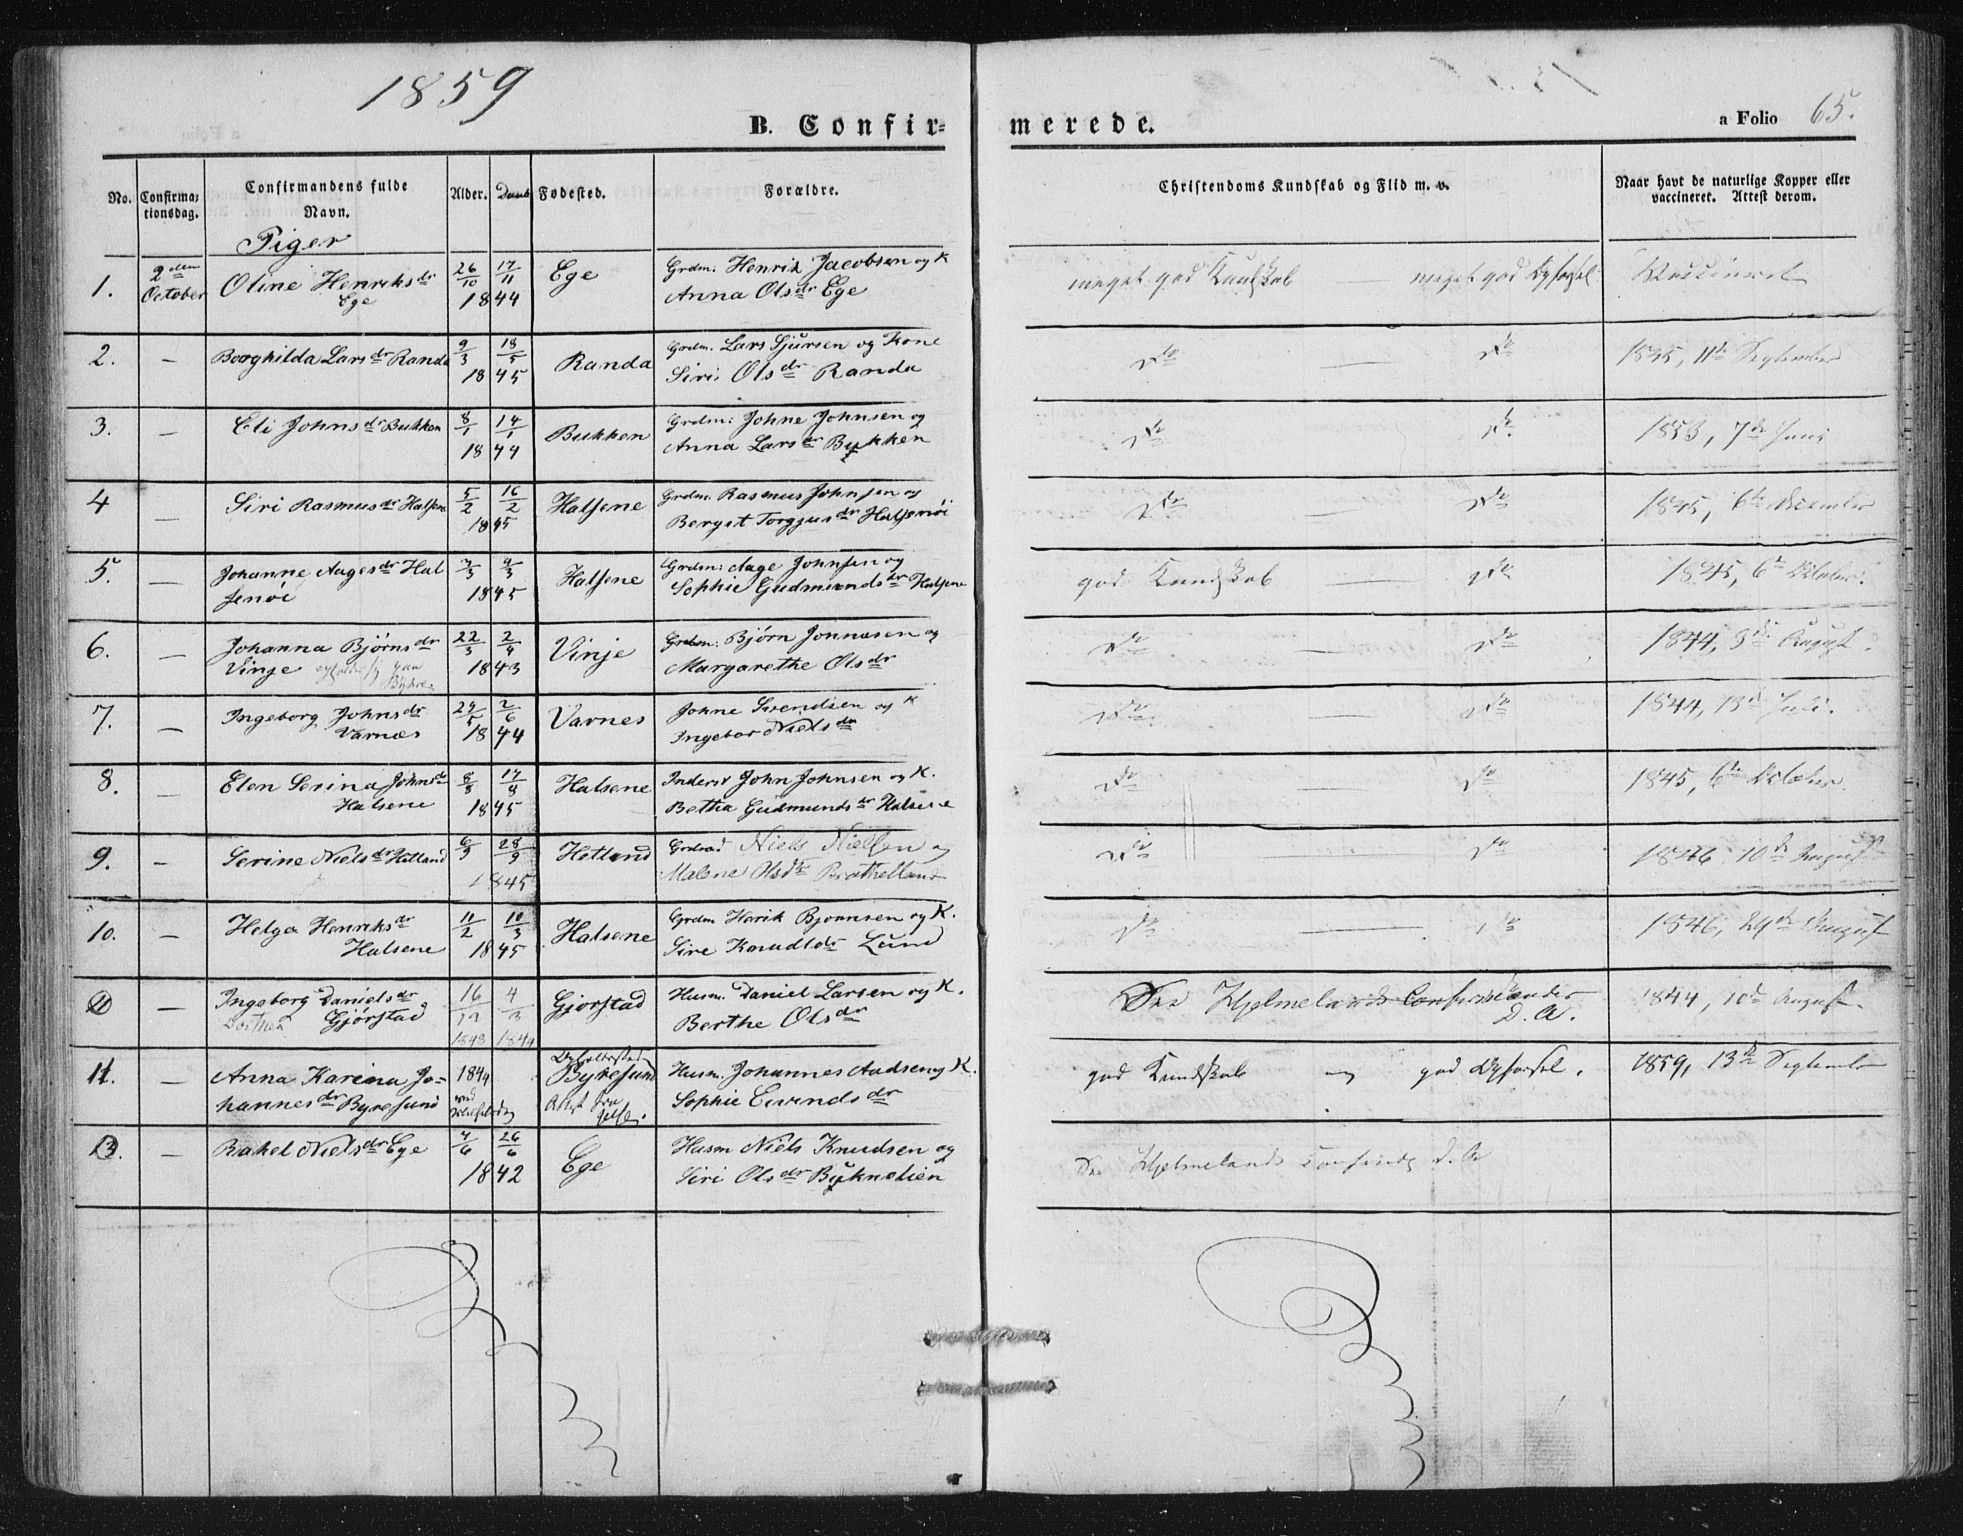 1859
B. Confirmerede.
a Folio 65.
No. Confirmationsdag. Confirmandens fulde Navn. Alder. Daab Fødested. Forældre. Christendoms Kundskab og Flid m. v. Naar havt de naturlige Kopper eller vaccineret. Attest derom.
Piger
1. 2den October Oline Henriksdr Ege 26/10 17/11 1844 Ege Grdm. Henrik Jacobsen og K Anna Olsdr Ege meget god Kundskab — meget god Opførsel Vaccineret
2. — Borghilda Larsdr Randa 9/3 18/5 1845 Randa Grdm. Lars Sjursen og Kone Siri Olsdr Randa do — do 1845, 11te September
3. — Eli Johnsdr Bukken 8/1 14/1 1844 Bukken Grdm: Johne Johnsen og Anna Larsdr Bukken do do 1853, 7de Juni
4 — Siri Rasmusdr Halsene 5/2 16/2 1845 Halsene Grdm. Rasmus Johnsen og Bergit Torgjusdr Halsenøi do — do 1845, 6te
5. — Johanne Aagesdr Halsenøi 9/3 1845 Halsene Grdm: Aage Johnsen og Sophie Gudmundsdr Halsene god Kundskab — do 1845, 6te October.
6. — Johanna Bjørnsdr Vinje 22/3 2/4 1843 Vinje Grdm: Bjørn Jonnasen og Margarethe Olsdr do — do 1844, August.
7. — Ingeborg Johnsdr Varnes 24/5 2/6 1844 Varnes Johne Svendsen og K Ingebor Nielsdr do — do 1844, 13de Juli.
8. — Elen Serina Johnsdr Halsene 1845 Halsene Inderst John Johnsen og K. Betha Gudmundsdr Halsene do — do 1845, 6te October
9. — Serine Nielsdr Hetland 1845 Hetland Niels Nielsen og Malene Olsdtr do — do 1846 10de August
10. — Helga Henriksdr Halsene 11/2 10/3 1845 Halsene Grdm Henrik Bjørnsen og K. Sire Knudtdr Lund do — do 1846, 29de August
— Ingeborg Danielsdr Gjørstad 16/12 1843 1844 Gjørstad Husm. Daniel Larsen og K. Berthe Olsdr See Hjelmelands D. A. 1844, 10de August.
11. — Anna Karina Johannesdr Byresund 1844 Byresund Husm. Johannes Aadsen og K. Sophie Eivindsdr god Kundskab — god Opførsel. 1859, 13de September
— Rakel Nielsdr Ege 4/6 26/6 1842 Ege Husm Niels Knudsen og Siri Olsdr See Hjelmelands D. A